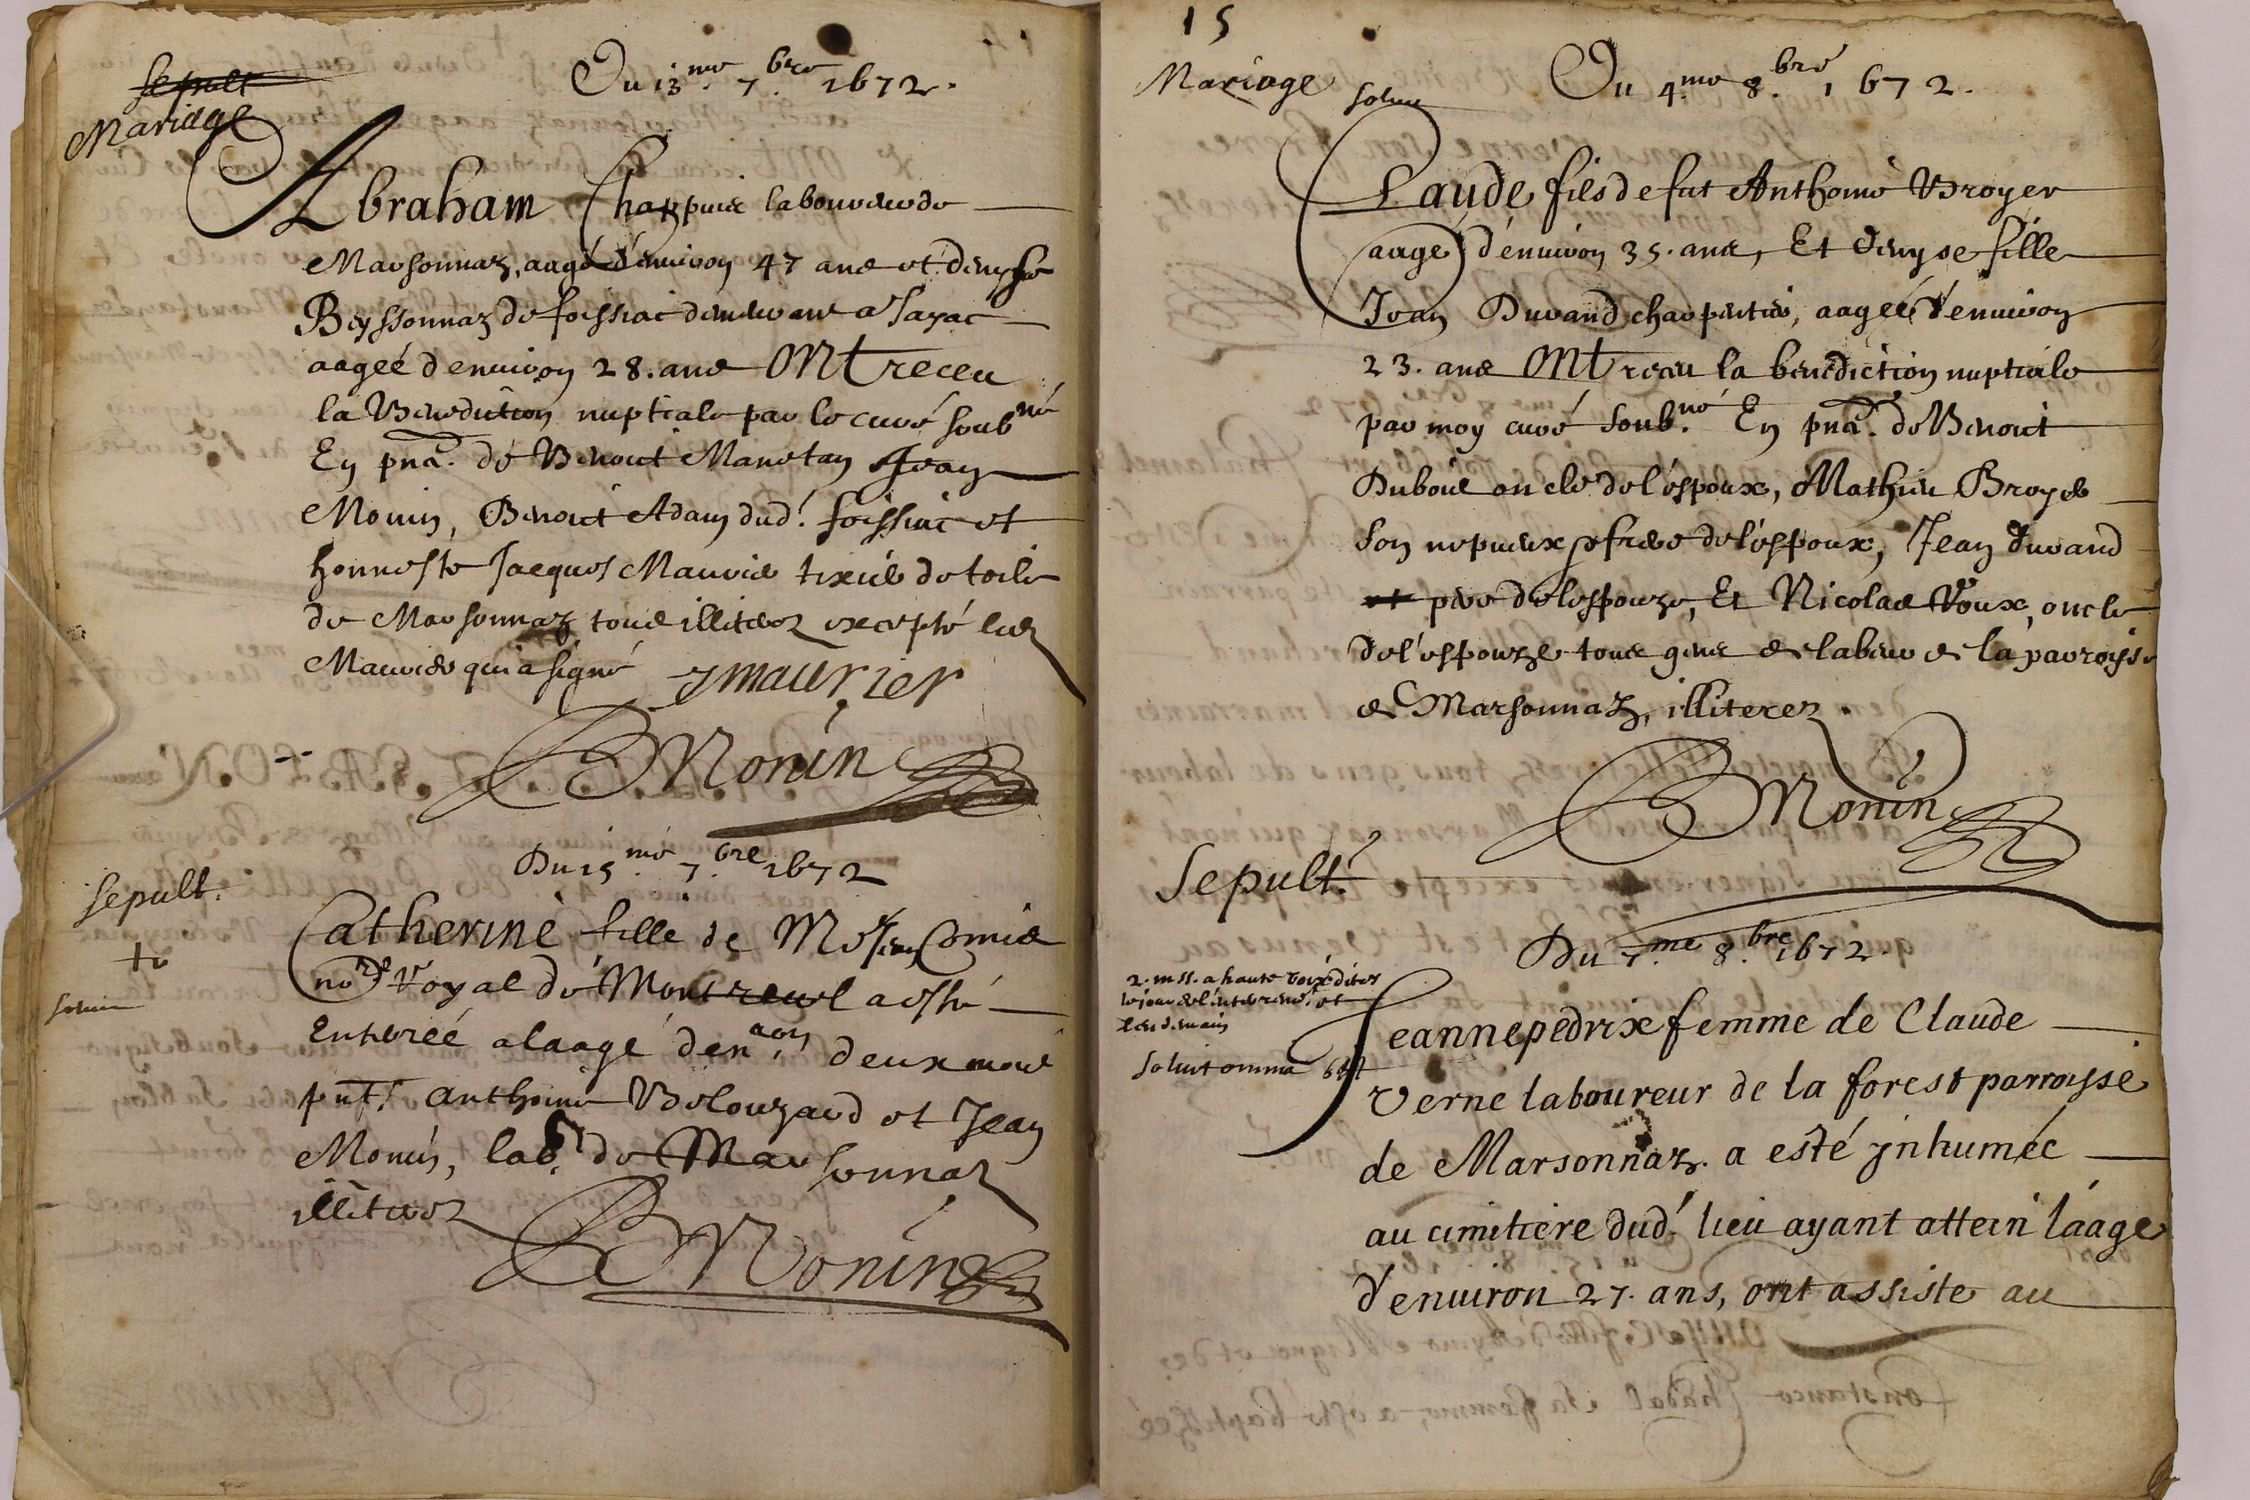 Sepult
Mariage
Du 13.me 7.bre 1672.
Abraham Chappuis laboureur de
Marsonnaz, aagé d'enuiron 47 ans et denyse
Beyssonnaz de foissiac demeurant a Jayac
aageé d'enuiron 28. ans ONt receu
la Benediction nuptiale par le curé soub.né
En pna. de Benoit Manetan Jean
Monin, Benoit Adam dud. foissiac et
honneste Jacques Maurier tixier de toile
de Marsonnaz tous illiterez excepté led
Maurier qui a signé
J maurier
B Monin
Sepult.
Du 15.me 7.bre 1672
soluit
Catherine fille de Me Jean Comte
no.re Royal de Montreuel a esté
Enterréé a laage d'en.aon deux mois
pnt. Anthoine Belouzard et Jean
Monin, lab.rs de Marsonnaz
illiterez
B Monin
15
Mariage
soluit
Du 4.me 8.bre 1672.
Claude fils de fut Anthoine Broyer
aagé d'enuiron 35. ans, Et Denyse fille
Jean Durand charpentier, aageé d'enuiron
23. ans ONt receu la benediction nuptiale
par moy curé soub.né En pna. de Benoit
Dubois oncle de l'éspoux, Mathieu Broyer
son nepueux frere de l'éspoux, Jean Durand
et pere de lespouze, Et Nicolas Roux, oncle
de l'espouze tous gens de labeur de la parroisse
de Marsonnaz, illiterez.
B Monin
Sepult.
Du 7.me 8.bre 1672.
2. mss. a haute voix dites
le jour de l'enterrement et
lendemain
soluit omnia
Jeanne pedrix femme de Claude
Verne laboureur de la forest parroysse
de Marsonnaz. a esté jnhumée
au cimitiere dud. lieu ayant attein láage
d'enuiron 27. ans, ont assiste au